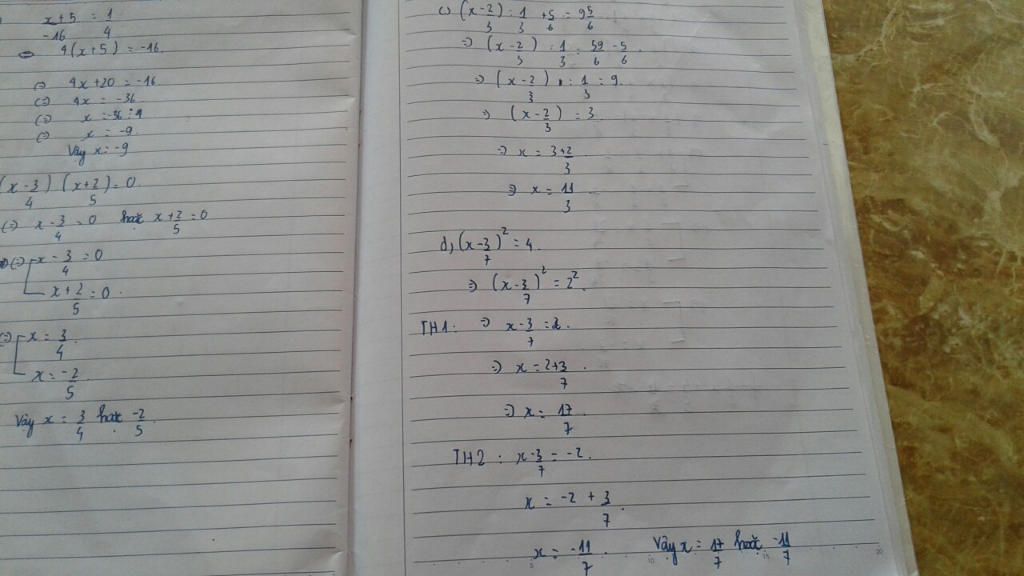 x+5/-16 = 1/4
4(x+5) = -16
(=) 4x+20 = -16
(=) 4x = -36
(=) x = -36:4
(=) x = -9
Vậy x = -9
(x - 3/4) (x + 2/5) = 0
(=) x - 3/4 = 0 hoặc x + 2/5 = 0
(=) x - 3/4 = 0
x + 2/5 = 0
(=) x = 3/4
x = -2/5
Vậy x = 3/4 hoặc -2/5
c) (x - 2/3) : 1/3 + 5/6 = 9 5/6
=) (x - 2/3) : 1/3 = 59/6 - 5/6
=) (x - 2/3) : 1/3 = 9
=) (x - 2/3) = 3
=) x = 3 + 2/3
=) x = 11/3
d, (x - 3/7)² = 4
=) (x - 3/7)² = 2²
TH1: =) x - 3/7 = 2
=) x = 2 + 3/7
=) x = 17/7
TH2: x - 3/7 = -2
x = -2 + 3/7
x = -11/7
Vậy x = 17/7 hoặc -11/7